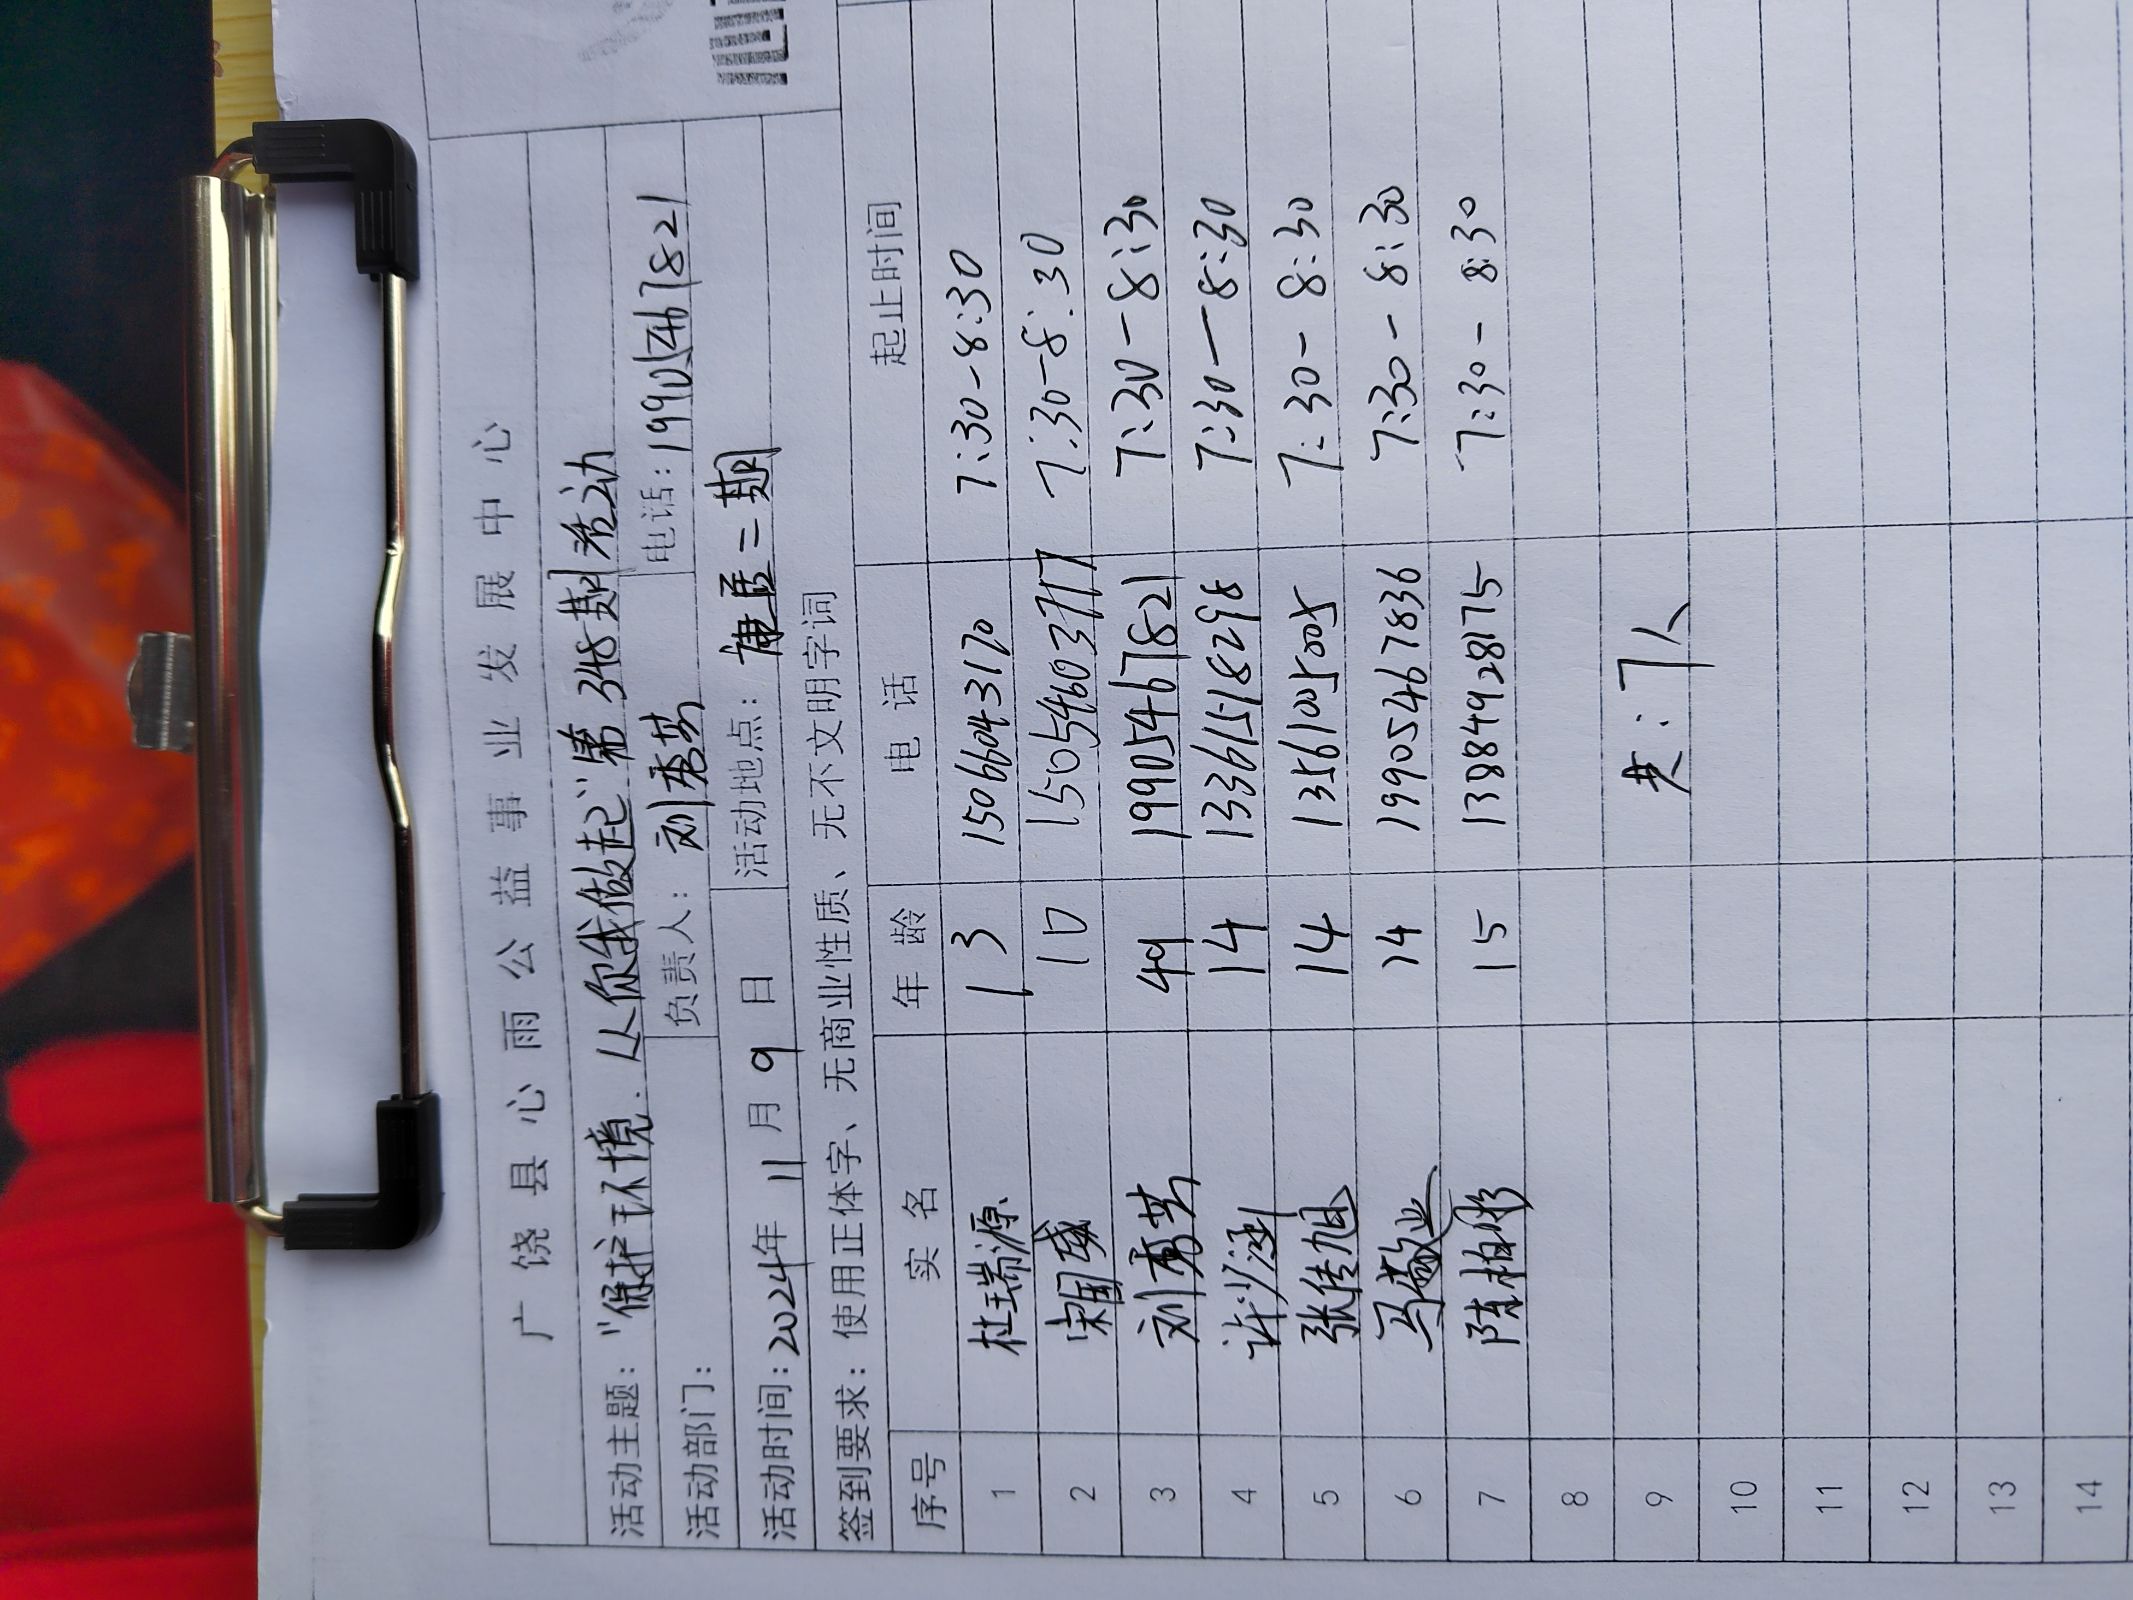 广饶县心雨公益事业发展中心
活动主题：“保护环境.从你我做起”第348期活动
活动部门： 负责人：刘秀芳 电话：19905467821
活动时间：2024年11月9日 活动地点：康居二期
签到要求：使用正体字、无商业性质、无不文明字词
序号 实名 年龄 电话 起止时间
1 杜瑞源 13 15066043170 7:30-8:30
2 10 15054603717 7:30-8:30
3 刘秀芳 49 19905467821 7:30-8:30
4 许涵 14 13361518298 7:30-8:30
5 张佳旭 14 13561005005 7:30-8:30
6 马敬业 14 19905467836 7:30-8:30
7 陈柏彤 15 13884928175 7:30-8:30
8
9 共：7人
10
11
12
13
14